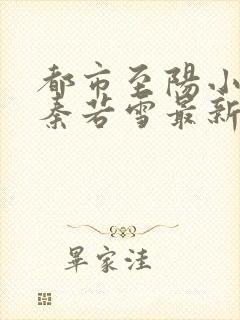 都市至陽小
秦若雪最新
畢家洼